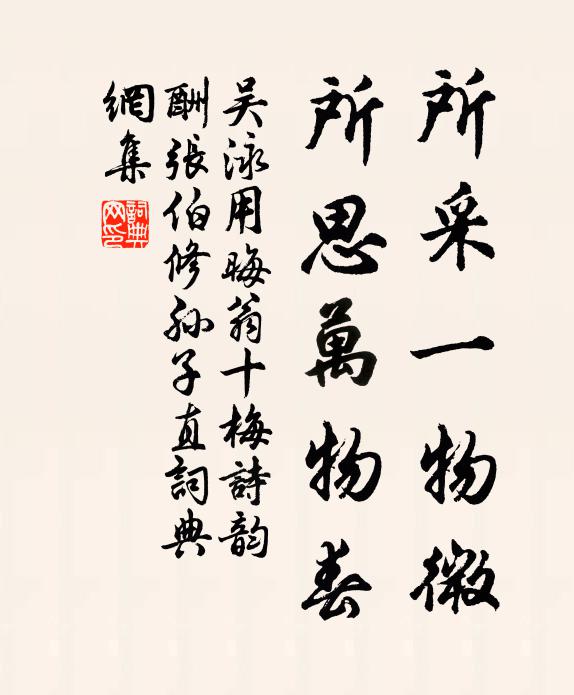 所采一物微
所思萬物春
吴泳用晦翁十梅詩韵
酬張伯修孙子直詞典
網集
詞典
网印